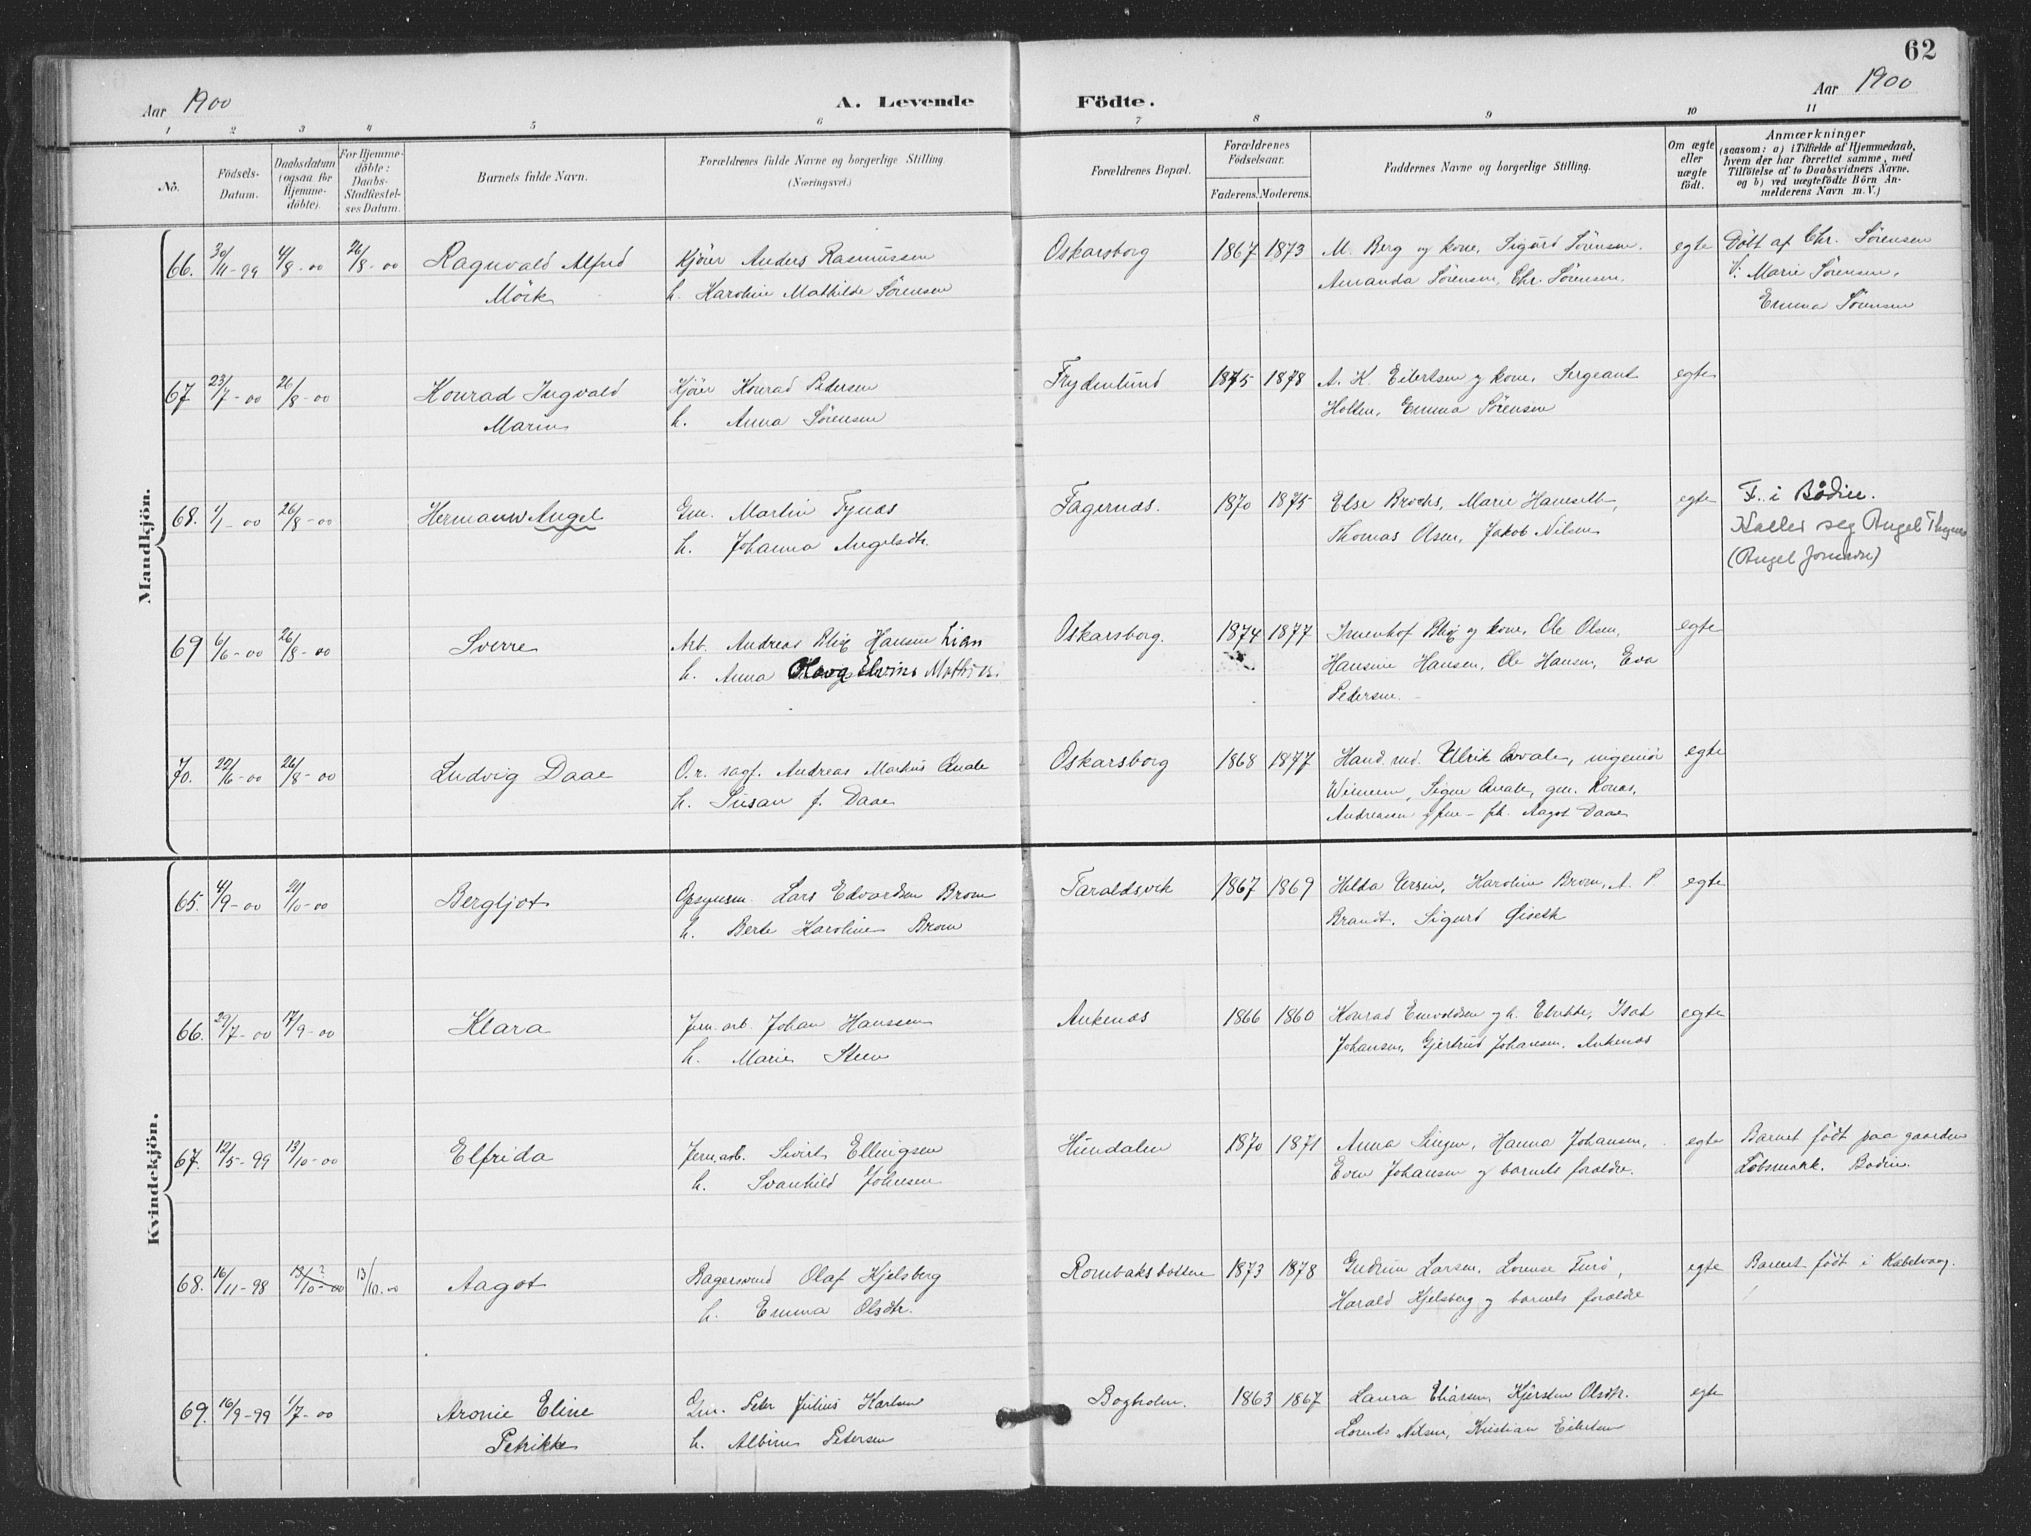 62
Aar 1900
A. Levende
Födte.
Aar 1900
1 2 3 4 5 6 7 8 9 10 11
No.
Födsels-
Datum.
Daabsdatum
(ogsaa for
Hjemme-
döbte).
For Hjemme-
döbte:
Daabs-
Stadfæstel-
ses Datum.
Barnets fulde Navn.
Forældrenes fulde Navne og borgerlige Stilling.
(Næringsvei.)
Forældrenes Bopæl.
Forældrenes
Födselsaar.
Faderens. Moderens.
Faddernes Navne og borgerlige Stilling.
Om ægte
eller
uægte
födt.
Anmærkninger
(saasom: a) i Tilfælde af Hjemmedaab,
hvem der har forrettet samme, med
Tilföielse af to Daabsvidners Navne.
og b) ved uægtefödte Börn An-
melderens Navn m. V.)
Mandkjön.
66. 30/11-99 4/8-00 26/8-00 Ragnvald Alfred Kjörer Anders Rasmussen Oskarsborg 1867 1873 M. Berg og kone, Sigurd Sörensen. egte Döbt af Chr. Sörensen
Mörk h. Karoline Mathilde Sörensen Amanda Sörensen, Chr. Sörensen. V. Marie Sörensen,
Emma Sörensen
67 23/7-00 26/8-00 Konrad Ingvald Kjörer Konrad Pedersen Frydenlund 1875 1878 A. K. Eilertsen og kone, Sergeant egte
Marius h. Anna Sörensen Holten, Emma Sörensen
68. 1/1-00 26/8-00 Hermann Angel Gm. Martin Tjnæs Fagernæs. 1870 1875 Else Brochs, Marie Hanseth, egte F. i Bodin.
h. Johanna Angelsdtr. Thomas Olsen, Jakob Nilsen Kaller seg Angel Thynes
(Angel Jonassen)
69 6/6-00 26/8-00 Sverre Arb. Andreas Blix Hansen Lian Oskarsborg. 1874 1877 Blix og kone, Ole Olsen, egte
h. Anna Elvine Hansine Hansen, Ole Hansen, Eva
Pedersen.
70. 22/6-00 26/8-00 Ludvig Daae O.r. sagf. Andreas Markus Qvale Oskarsborg 1868 1877 Hand. md. Ulrik Qvale, ingeniör egte
h. Susan f. Daae Signe Qvale, gm. Ronæs,
Andreasen og frue - frk. Aagot Daae
Kvindekjön.
65. 4/9-00 21/10-00 Bergljot Opsynsm. Lars Edvardsen Brom Taraldsvik 1867 1869 Hilda Karoline Brom, A. P egte
h. Berte Karoline Brom Brandt, Sigurd Öiseth
66. 29/7-00 17/9-00 Klara Jern.arb. Johan Hanssen Ankenæs 1866 1860 Konrad Enevoldsen og h. Isak egte
h. Marie Steen Johansen, Gjertrud Johansen, Ankenæs
67. 12/5-99 13/10-00 Elfrida Jern.arb. Sivert Ellingsen Hundalen 1870 1871 Anna Hanna Johansen, egte Barnet födt paa gaarden
h. Svanhild Johnsen Even Johansen og barnets foræltdre. Löbsmark. Bodin.
68. 16/11-98 13/10-00 ? 13/10.00 Aagot Bagersvend Olaf Kjelsberg Rombaksbotten 1873 1878 Gudrun Larsen, Lovise egte Barnet födt i Kabelvaag.
h. Emma Olsdtr. Harald Kjelsberg og barnets foræltdre
69. 16/9-99 1/7-00 Aronie Eline Gm. Peter Julius Karlsen Bogholm. 1863 1867 Laura Eliasen, Kjersten Olsdtr. egte
Petrikke h. Albine Petersen Lorents Nilsen, Kristian Eilertsen